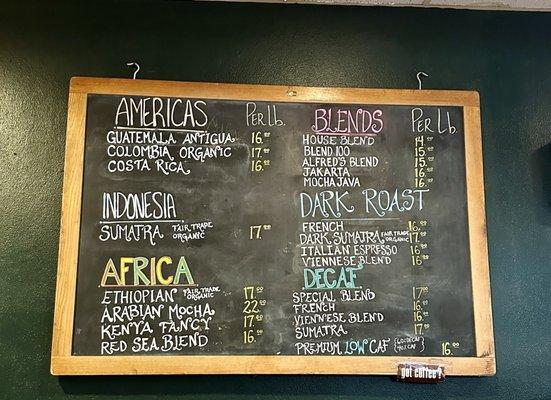 AMERICAS PER LB.
GUATEMALA ANTIGUA 16.00
COLOMBIA ORGANIC 17.00
COSTA RICA 16.00
INDONESIA
SUMATRA FAIR TRADE ORGANIC 17.00
AFRICA
ETHIOPIAN FAIR TRADE ORGANIC 17.00
ARABIAN MOCHA 22.00
KENYA FANCY 17.00
RED SEA BLEND 16.00
BLENDS PER LB.
HOUSE BLEND 14.00
BLEND 100 15.00
ALFRED'S BLEND 15.00
JAKARTA 16.00
MOCHA JAVA 16.00
DARK ROAST
FRENCH 16.00
DARK SUMATRA FAIR TRADE ORGANIC 17.00
ITALIAN ESPRESSO 16.00
VIENNESE BLEND 16.00
DECAF
SPECIAL BLEND 17.00
FRENCH 16.00
VIENNESE BLEND 16.00
SUMATRA 17.00
PREMIUM LOW CAF 16.00
got coffee?